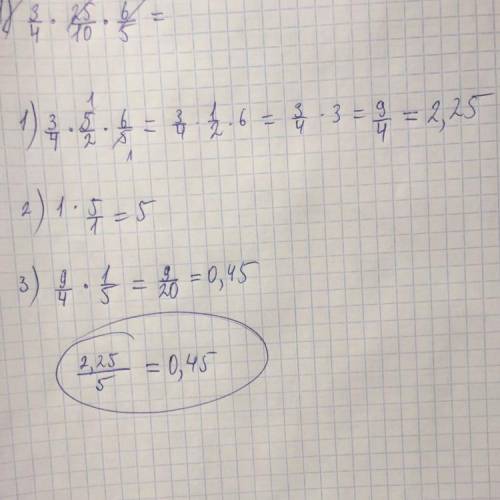 1) 3/4 · 25/10 · 6/5 =
1) 3/4 · 5/2 · 6/5 = 3/4 · 1/2 · 6 = 3/4 · 3 = 9/4 = 2,25
2) 1 · 5/1 = 5
3) 9/4 · 1/5 = 9/20 = 0,45
2,25/5 = 0,45